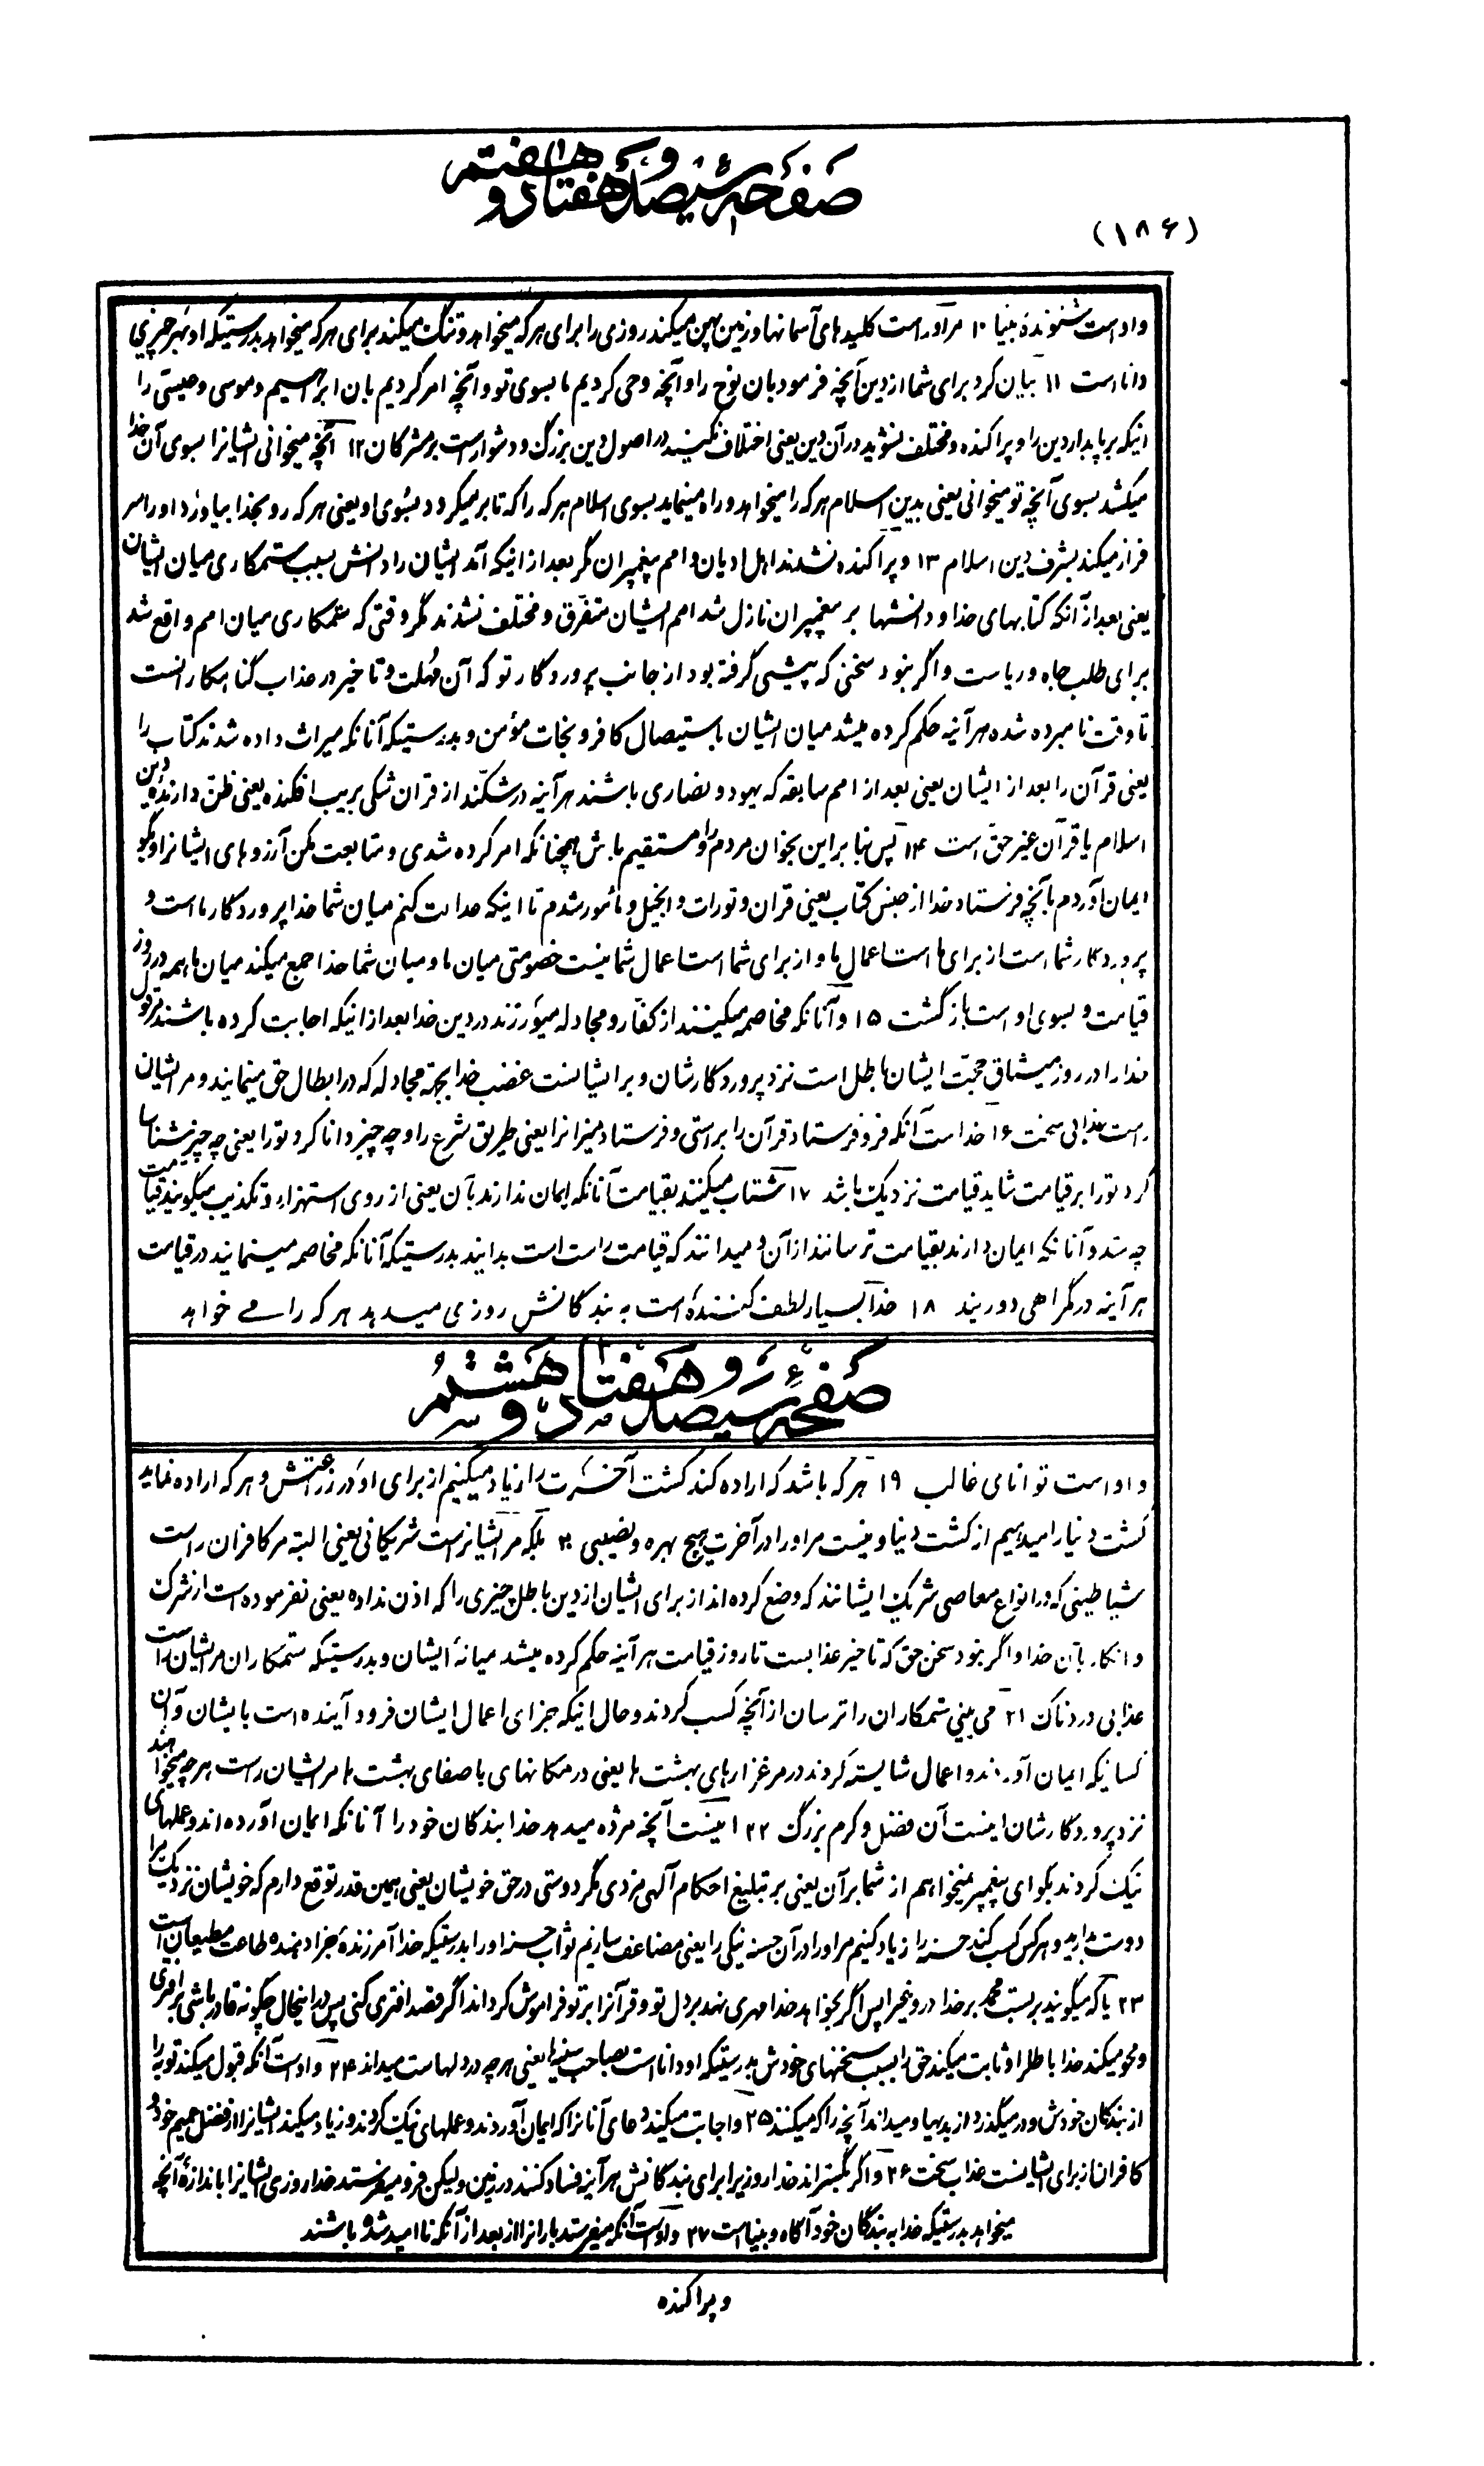 صفحه سیصد و هفتاد و هفتم
(۱۸۶)
و اوست شنونده بینا ۱۰ مر او راست کلیدهای آسمانها و زمین پهن میکند روزی را برای هر که میخواهد و تنگ میکند برای هر که میخواهد بدرستیکه او بهر چیزی
دانا است ۱۱ بیان کرد برای شما از دین آنچه فرمود بآن نوح را و آنچه وحی کردیم ما بسوی تو و آنچه امر کردیم بان ابراهیم و موسی و عیسی را
اینکه بر پا بدارید دین را و پراکنده و مختلف نشوید در آن دین یعنی اختلاف نکنید در اصول دین بزرگ و دشوار است بر مشرکان ۱۲ آنچه میخوانی ایشانرا بسوی آن خدا
میکشد بسوی آنچه تو میخوانی یعنی بدین اسلام هر که را میخواهد و راه مینماید بسوی اسلام هر که را که تا بر میگردد بسوی او یعنی هر که رو بخدا بیاورد او را سر
فراز میکند بشرف دین اسلام ۱۳ و پراکنده نشدند اهل ادیان و امم پیغمبران مگر بعد از اینکه آمد ایشان را دانش بسبب ستمکاری میان ایشان
یعنی بعد از آنکه کتابهای خدا و دانشها بر پیغمبران نازل شد امم ایشان متفرق و مختلف نشدند مگر وقتی که ستمکاری میان امم واقع شد
برای طلب جاه و ریاست و اگر نبود سخنی که پیشی گرفته بود از جانب پروردگار تو که آن مهلت و تاخیر در عذاب گناهکارانست
تا وقت نامبرده شده هر آینه حکم کرده میشد میان ایشان باستیصال کافر و نجات مؤمن و بدرستیکه آنانکه میراث داده شدند کتاب را
یعنی قرآن را بعد از ایشان یعنی بعد از امم سابقه که یهود و نصاری باشند هر آینه در شکند از قران شکی بریب افکنده یعنی ظن دارند دین
اسلام یا قرآن غیر حق است ۱۴ پس بنا براین بخوان مردم را و مستقیم باش همچنانکه امر کرده شدی و متابعت مکن آرزوهای ایشانرا و بگو
ایمان آوردم بآنچه فرستاد خدا از جنس کتاب یعنی قران و تورات و انجیل و مأمور شدم تا اینکه عدالت کنم میان شما خدا پروردگار ما است و
پروردگار شما است از برای ما است اعمال ما و از برای شما است اعمال شما نیست خصومتی میان ما و میان شما خدا جمع میکند میان ما همه در روز
قیامت و بسوی او است بازگشت ۱۵ و آنانکه مخاصمه میکنند از کفار و مجادله میورزند در دین خدا بعد از اینکه اجابت کرده باشند قول
خدا را در روز میثاق حجت ایشان باطل است نزد پروردگارشان و بر ایشانست غضب خدا بجهة مجادله که در ابطال حق مینمایند و مر ایشان
راست عذابی سخت ۱۶ خداست آنکه فرو فرستاد قرآن را براستی و فرستاد میزانرا یعنی طریق شرع را و چه چیز دانا کرد تو را یعنی چه چیز شناسا
کرد تو را بر قیامت شاید قیامت نزدیک باشد ۱۷ شتاب میکنند بقیامت آنانکه ایمان ندارند بآن یعنی از روی استهزاء و تکذیب میگویند قیامت
چه شد و آنانکه ایمان دارند بقیامت ترسانند از آن و میدانند که قیامت راست است بدانید بدرستیکه آنانکه مخاصمه مینمایند در قیامت
هر آینه در گمراهی دورند ۱۸ خدا بسیار لطف کننده است به بندگانش روزی میدهد هر که را می خواهد
صفحه سیصد و هفتاد و هشتم
و او است توانای غالب ۱۹ هر که باشد که اراده کند کشت آخرت را زیاد میکنیم از برای او در زراعتش و هر که اراده نماید
کشت دنیا را میدهیم از کشت دنیا و نیست مر او را در آخرت هیچ بهره و نصیبی ۲۰ بلکه مر ایشانراست شریکانی یعنی البته مر کافران راست
شیاطینی که در انواع معاصی شریک ایشانند که وضع کرده اند از برای ایشان از دین باطل چیزی را که اذن نداده یعنی نفرموده است از شرک
و انکار بآن خدا و اگر نبود سخن حق که تاخیر عذابست تا روز قیامت هر آینه حکم کرده میشد میانۀ ایشان و بدرستیکه ستمکاران مر ایشان راست
عذابی دردناک ۲۱ می بینی ستمکاران را ترسان از آنچه کسب کردند و حال اینکه جزای اعمال ایشان فرود آینده است بایشان و آن
کسانیکه ایمان آوردند و اعمال شایسته کردند در مرغزارهای بهشت ها یعنی در مکانهای با صفای بهشت ها مر ایشان راست هر چه میخواهند
نزد پروردگارشان اینست آن فضل و کرم بزرگ ۲۲ اینست آنچه مژده میدهد خدا بندگان خود را آنانکه ایمان آورده اند و عملهای
نیک کردند بگو ای پیغمبر نمیخواهم از شما بر آن یعنی بر تبلیغ احکام آلهی مزدی مگر دوستی در حق خویشان یعنی همین قدر توقع دارم که خویشان نزدیک مرا
دوست بدارید و هر کس کسب کند حسنه را زیاد کنیم مر او را در آن حسنه نیکی را یعنی مضاعف سازیم ثواب حسنۀ او را بدرستیکه خدا آمرزندۀ جزا دهنده طاعت مطیعان است
۲۳ یا که میگویند بر بست محمد بر خدا دروغ را پس اگر بخواهد خدا مهری نهد بر دل تو و قرآنرا بر تو فراموش گرداند اگر قصد افتری کنی پس در اینحال چگونه قادر باشی بر افتری
و محو میکند خدا باطل را و ثابت میکند حق را بسبب سخنهای خودش بدرستیکه او دانا است بصاحب سینه ها یعنی هر چه در دلهاست میداند ۲۴ و اوست آنکه قبول میکند توبه را
از بندگان خودش و در میگذرد از بدیها و میداند آنچه را که میکنند ۲۵ و اجابت میکند دعای آنانرا که ایمان آوردند و عملهای نیک کردند و زیاد میکند ایشانرا از فضل عمیم خود و
کافران از برای ایشانست عذاب سخت ۲۶ و اگر بگستراند خدا روزیرا برای بندگانش هر آینه فساد کنند در زمین و لیکن فرو میفرستد خدا روزی ایشانرا باندازۀ آنچه
میخواهد بدرستیکه خدا به بندگان خود آگاه و بینا است ۲۷ و اوست آنکه میفرستد بارانرا از بعد از آنکه ناامید شده باشند
و پراکنده